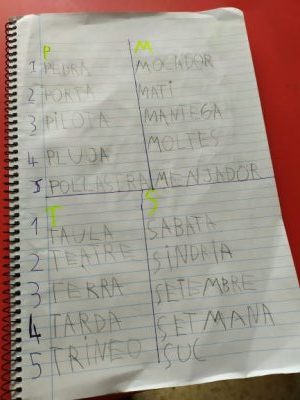 P M
1 PEDRA MOCADOR
2 PORTA MATÍ
3 PILOTA MANTEGA
4 PLUJA MOLTES
5 POLLASTRA MENJADOR
T S
1 TAULA SABATA
2 TEATRE SINDRIA
3 TERRA SETEMBRE
4 TARDA SETMANA
5 TRINEO SUC